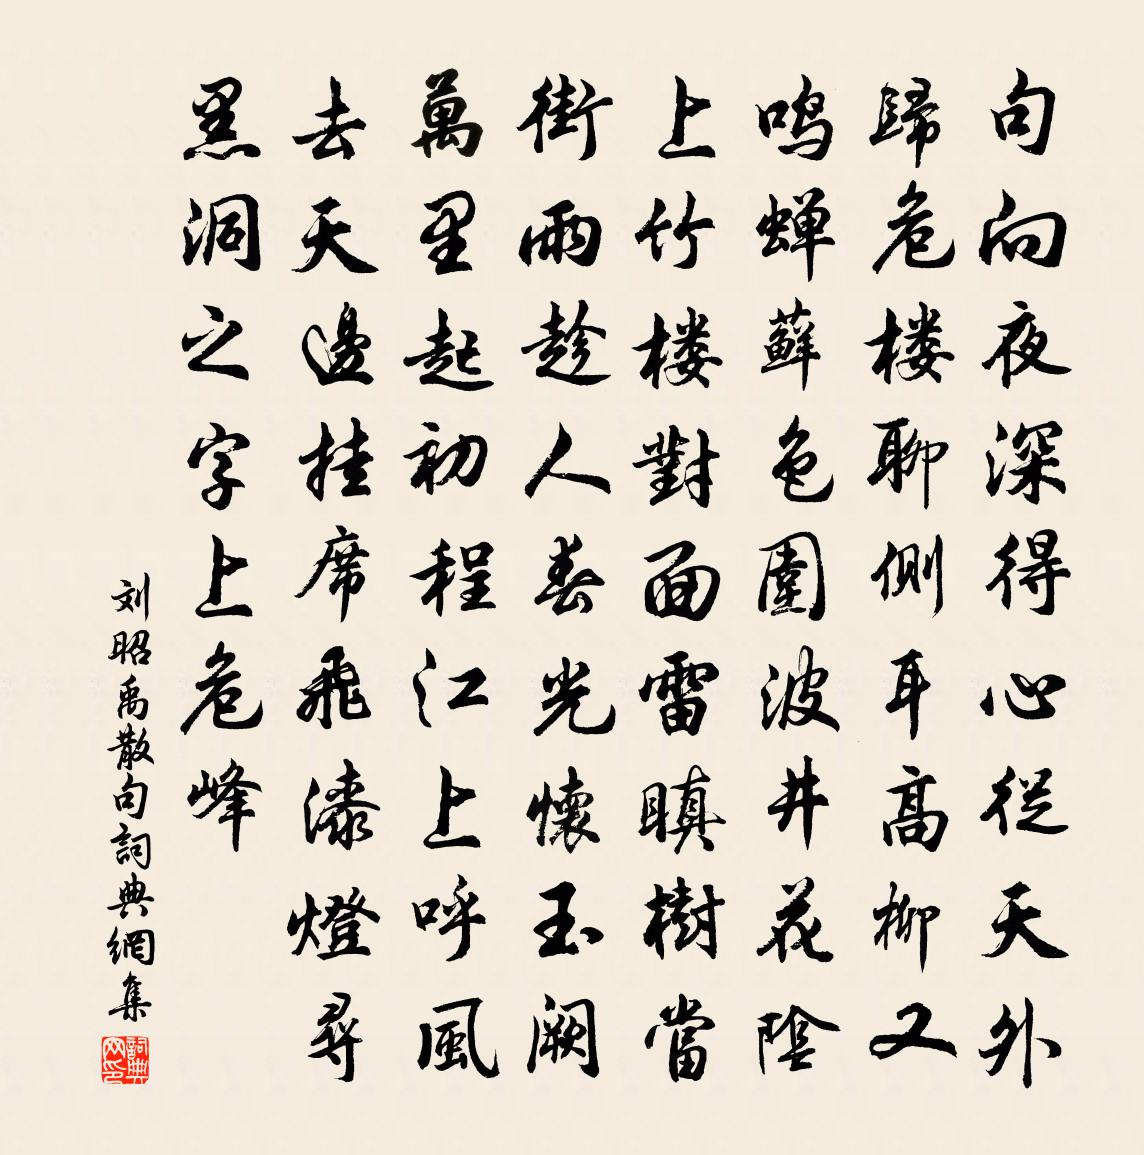 句向夜深得心從天外
歸危楼聊側耳高柳又
鸣蝉蘚色圍波井花陰
上竹楼對面雷瞋樹當
街雨趁人春光懷玉闕
萬里起初程江上呼風
去天邊挂席飛漆燈尋
黑洞之字上危峰
刘昭禹散句詞典網集
詞典网印